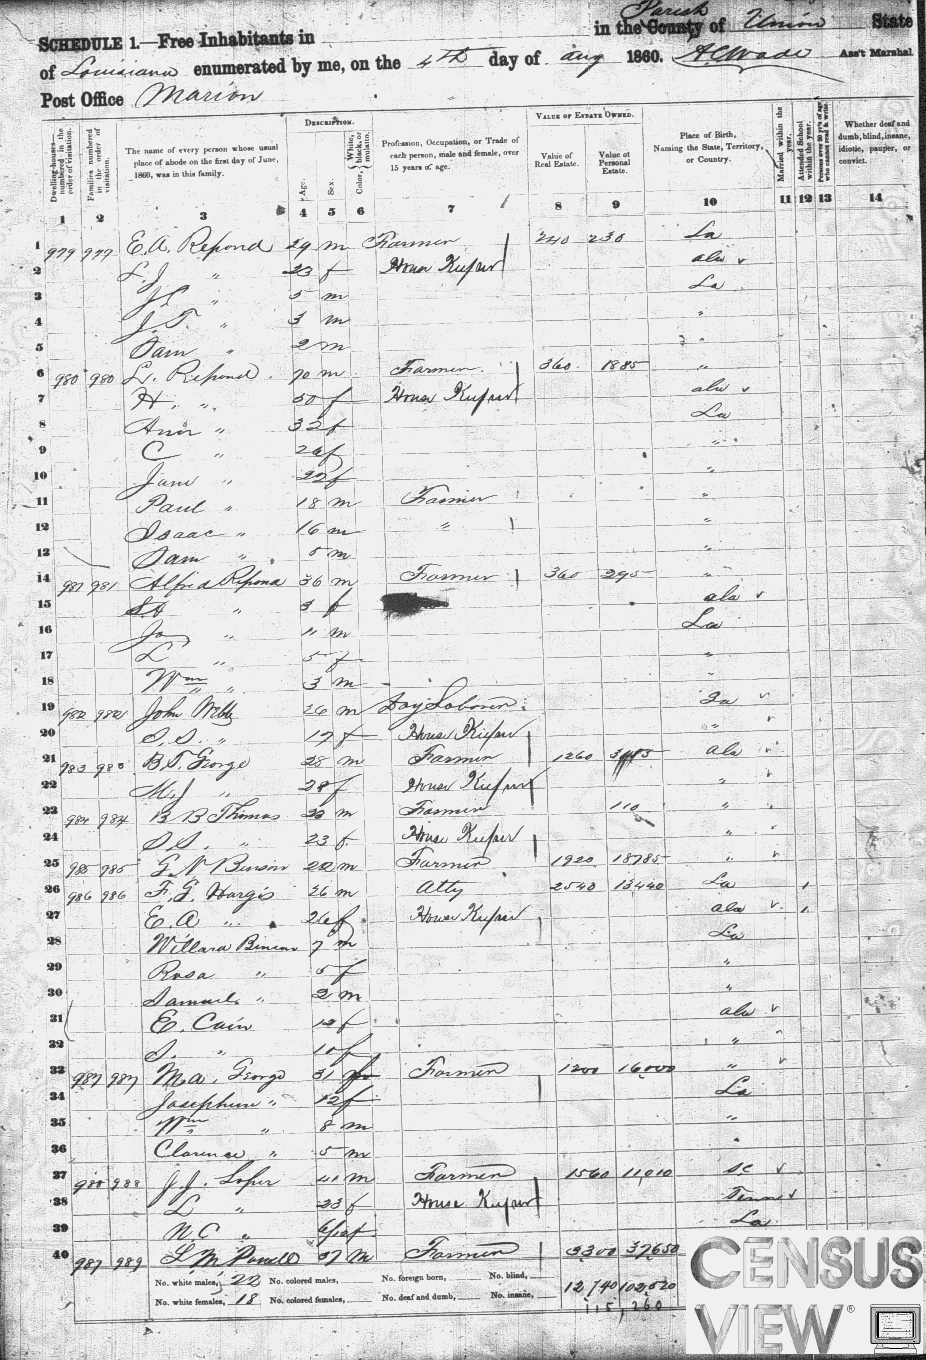 Parish
SCHEDULE 1.—Free Inhabitants in in the County of Union State
of Louisiana enumerated by me, on the 4th day of Aug 1860. A C Wade Ass't Marshal.
Post Office Marion
Dwelling-houses— numbered in the order of visitation.
Families numbered in the order of visitation.
The name of every person whose usual place of abode on the first day of June, 1860, was in this family.
DESCRIPTION.
Age.
Sex.
Color, White, black, or mulatto.
Profession, Occupation, or Trade of each person, male and female, over 15 years of age.
VALUE OF ESTATE OWNED.
Value of Real Estate.
Value of Personal Estate.
Place of Birth, Naming the State, Territory, or Country.
Married within the year.
Attended School within the year.
Persons over 20 y'rs of age who cannot read & write.
Whether deaf and dumb, blind, insane, idiotic, pauper, or convict.
1 2 3 4 5 6 7 8 9 10 11 12 13 14
1 979 977 E. A. Repond 29 m Farmer 240 230 La
2 L. J. " 23 f House Keeper ala
3 J. C. " 5 m La
4 J. T. " 3 m "
5 Sam " 2 m "
6 980 980 L. Repond 70 m Farmer 360 1885 "
7 H. " 50 f House Keeper ala
8 Ann " 32 f La
9 C " 26 f "
10 Jane " f "
11 Paul " 18 m Farmer "
12 Isaac " 16 m " "
13 Sam " 5 m "
14 981 981 Alfred Repond 36 m Farmer 360 295 "
15 S.A " 3 f ala
16 Jo " 11 m La
17 L " 5 f "
18 Wm " 3 m "
19 982 982 John Webb 26 m Day Laborer Ga
20 S. S. " 17 f House Keeper "
21 983 983 B. T. George 28 m Farmer 1260 ala
22 M. J " f House Keeper "
23 984 984 B B Thomas m Farmer 110 "
24 S S. " 23 f House Keeper "
25 985 985 G. N. Benson 22 m Farmer 1920 18785 "
26 986 986 F. G. Hargis 26 m Atty 2540 13440 La
27 E. A " 26 f House Keeper ala
28 Willard Benson 7 m La
29 Rosa " 5 f "
30 Samuel " 2 m "
31 E. Cain 12 f ala
32 S. " 10 f "
33 987 987 M. A. George 31 Farmer 1200 16000 "
34 Josephine " 12 f La
35 Wm " 8 m "
36 Clarence " 5 m "
37 988 988 J. J. Loper 41 m Farmer 1560 11,010 SC
38 L " 33 f House Keeper Tenn
39 N. C " f La
40 987 989 L. M. Powell 37 m Farmer 3300 37650
No. white males, 22 No. colored males, No. foreign born, No. blind, 12,740 102,520
No. white females, 18 No. colored females, No. deaf and dumb, No. insane, 115,260
CENSUS
VIEW®